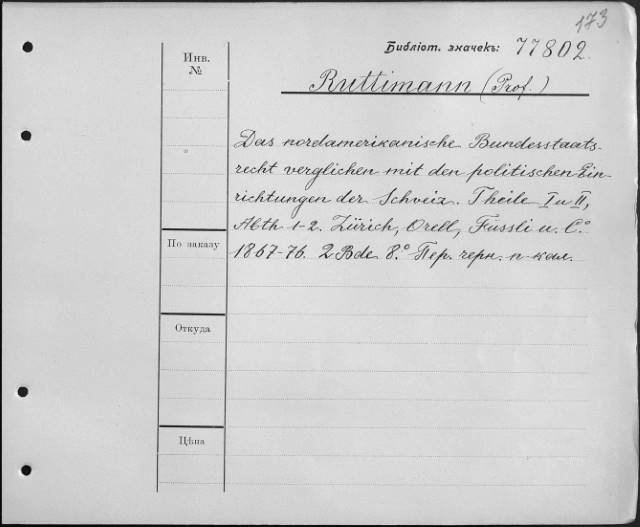 173
Библіот. значекъ: 77802.
Инв.
№
Ruttimann (Prof.)
Das nordamerikanische Bundesstaats-
recht verglichen mit den politischen Ein-
richtungen der Schweiz. Theile I u II,
Abth 1-2. Zürich, Orell, Fussli u. C.º
1867-76. 2 Bde 8.º Пер. черн. п-кал.
По заказу
Откуда
Цѣна